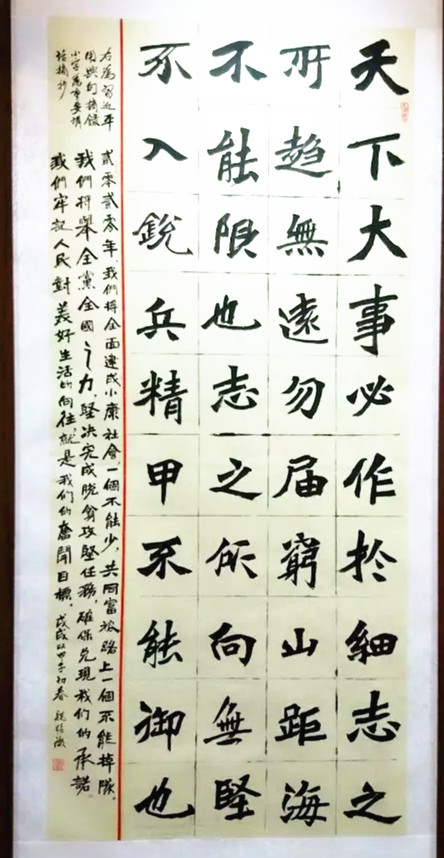 天下大事必作於細志之
所趨無遠勿届窮山距海
不能限也志之所向無堅
不入銳兵精甲不能御也
右為習近平
用典句摘錄
小字為重要講
話摘抄
貳零貳零年,我們將全面建成小康社會,一個不能少,共同富裕路上一個不能掉隊。
我們將舉全黨全國之力,堅决完成脱貧攻堅任務,確保兑現我們的承諾。
我們牢記人民對美好生活的向往,就是我們的奮鬥目標。戊戌初春